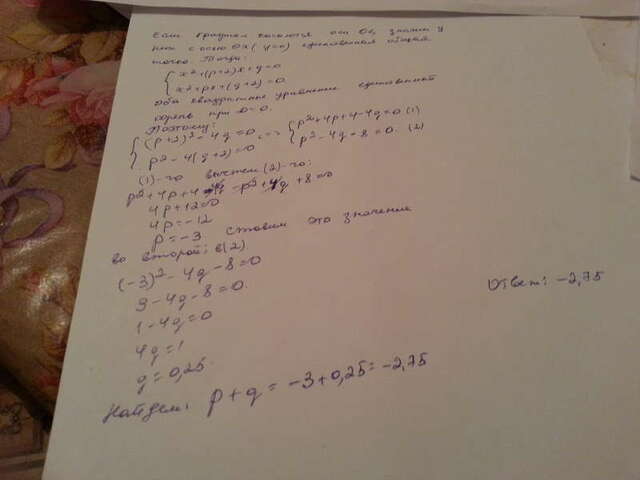 Если графики касаются оси Ox, значит у
них с осью Ox (y=0) единственная общая
точка. Тогда:
{ x²+(p+2)x+q=0
{ x²+px+(q+2)=0
Оба квадратные уравнение единственной
корень при D=0.
Поэтому:
{ (p+2)²-4q=0 => { p²+4p+4-4q=0 (1)
{ p²-4(q+2)=0 { p²-4q-8=0. (2)
(1)-го вычтем (2)-го:
p²+4p+4-4q-p²+4q+8=0
4p+12=0
4p=-12
p=-3 ставим это значение
во второй; в(2).
(-3)²-4q-8=0
9-4q-8=0.
1-4q=0
4q=1
q=0,25.
Найдем: p+q=-3+0,25=-2,75
Ответ: -2,75